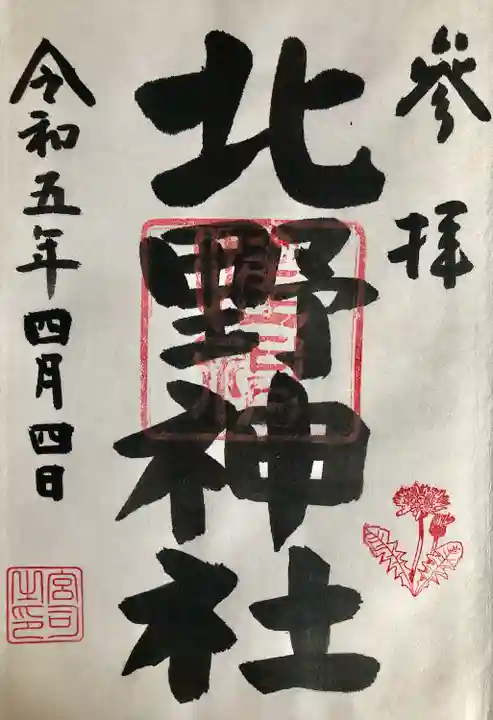 参拝
北野神社
令和五年四月四日
宮司之印